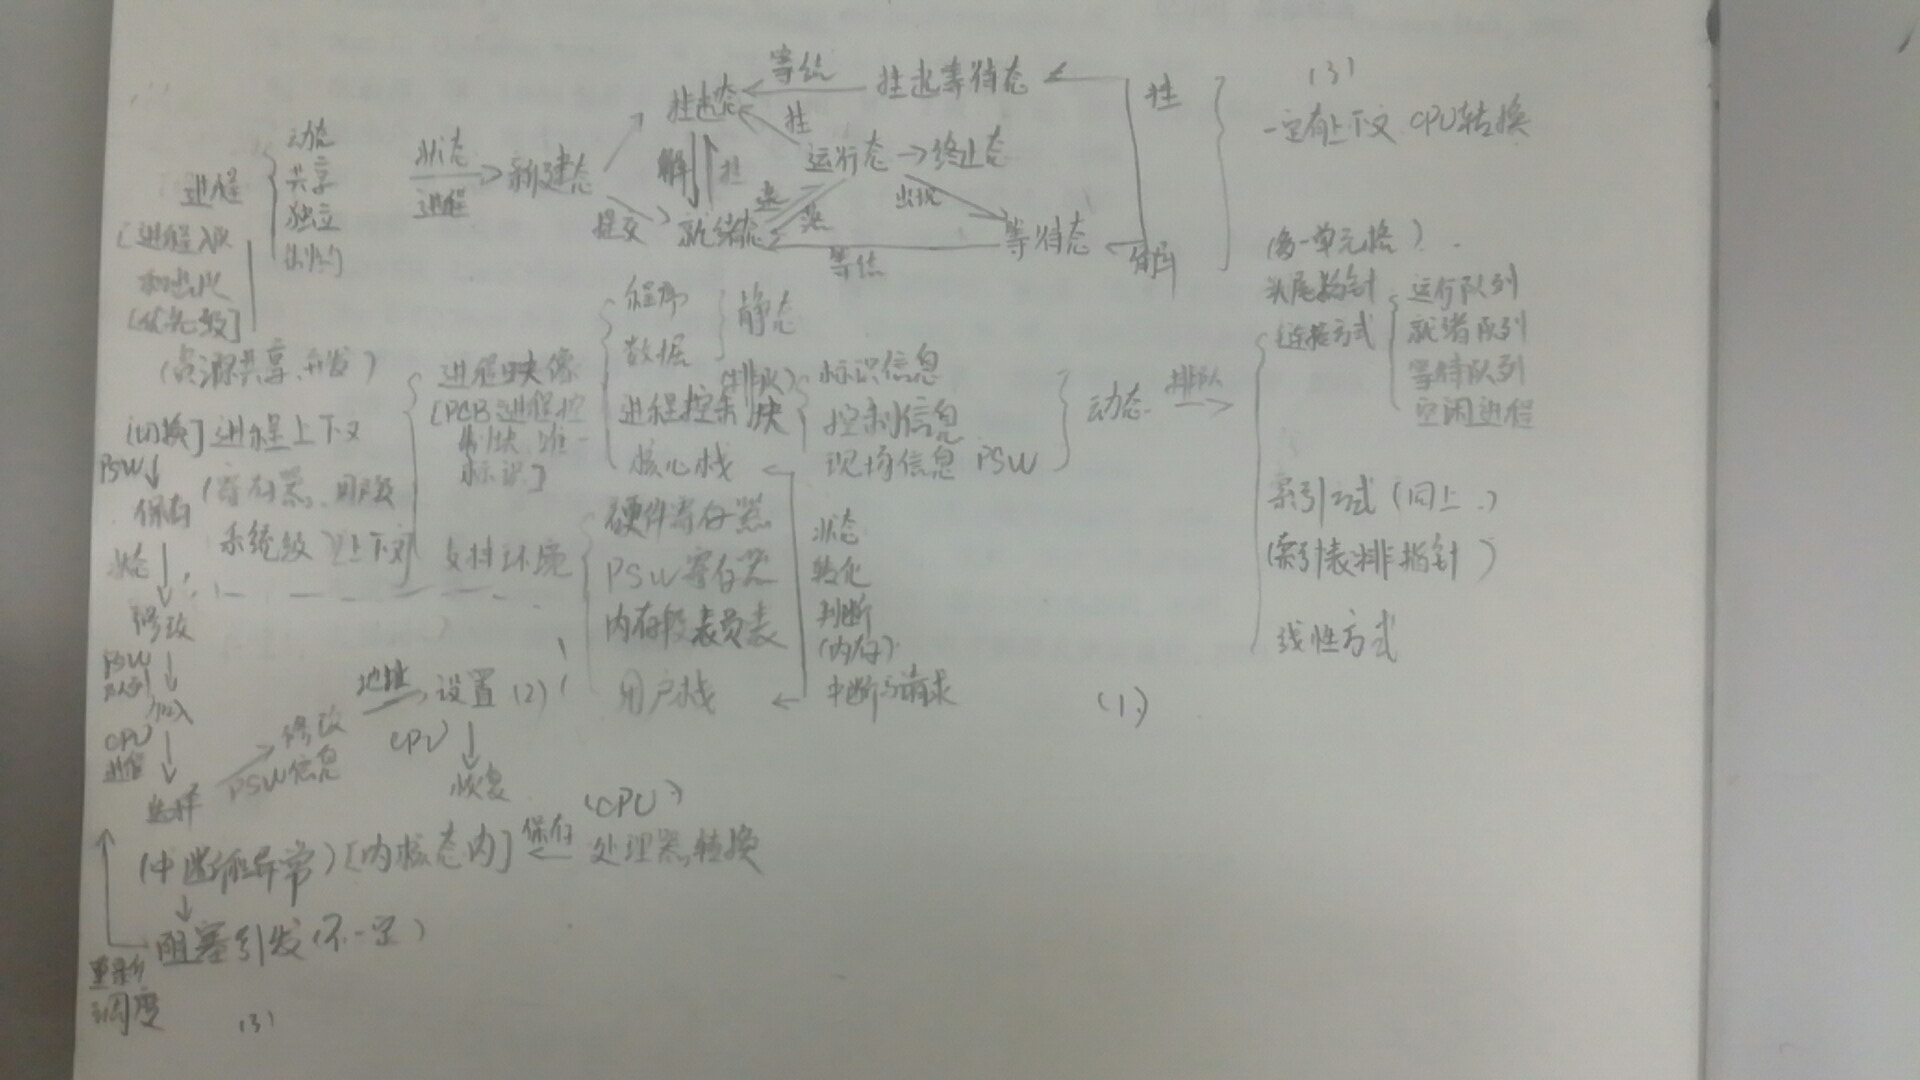 (3)
等结
挂起态
挂起等待态
挂
一定有上下文 CPU转换
动态
共享
独立
进程
状态
进程
新建态
解
挂
挂
运行态
终止态
出现
提交
就绪态
选
等待态
等结
解
[进程入队
和出队
[优先级]
(每一单元格)
头尾指针
连接方式
运行队列
就绪队列
等待队列
空闲进程
程序
数据
静态
(资源共享、并发)
进程映像
[PCB进程控
制块、唯一
标识]
(排队)
进程控制块
核心栈
标识信息
控制信息
现场信息 PSW
动态
排队
[切换]进程上下文
PSW
保存
(寄存器、用户级
系统级)上下文
状态
修改
支持环境
硬件寄存器
PSW寄存器
内存段表页表
用户栈
状态
转化
判断
(内存)
中断与请求
索引方式(同上)
(索引表排指针)
线性方式
(1)
PSW
队列
加入
CPU
进程
选择
修改
PSW信息
地址
设置(2)
CPU
恢复
(CPU)
处理器转换
保存
(中断和异常)[内核态内]
阻塞引发(不一定)
重新
调度
(3)